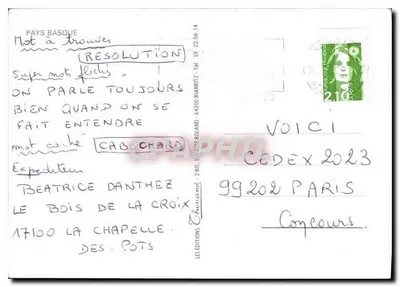 PAYS BASQUE
Mot à trouver
RESOLUTION
Super mot fléchés.
ON PARLE TOUJOURS
BIEN QUAND ON SE
FAIT ENTENDRE
mot caché CABOCHARD
Expediteur
BEATRICE DANTHEZ
LE BOIS DE LA CROIX
17100 LA CHAPELLE
DES POTS
LES EDITIONS
64200 BIARRITZ - Tél. 59 23.06.14
2,10
VOICI
CEDEX 2023
99202 PARIS
Concours.